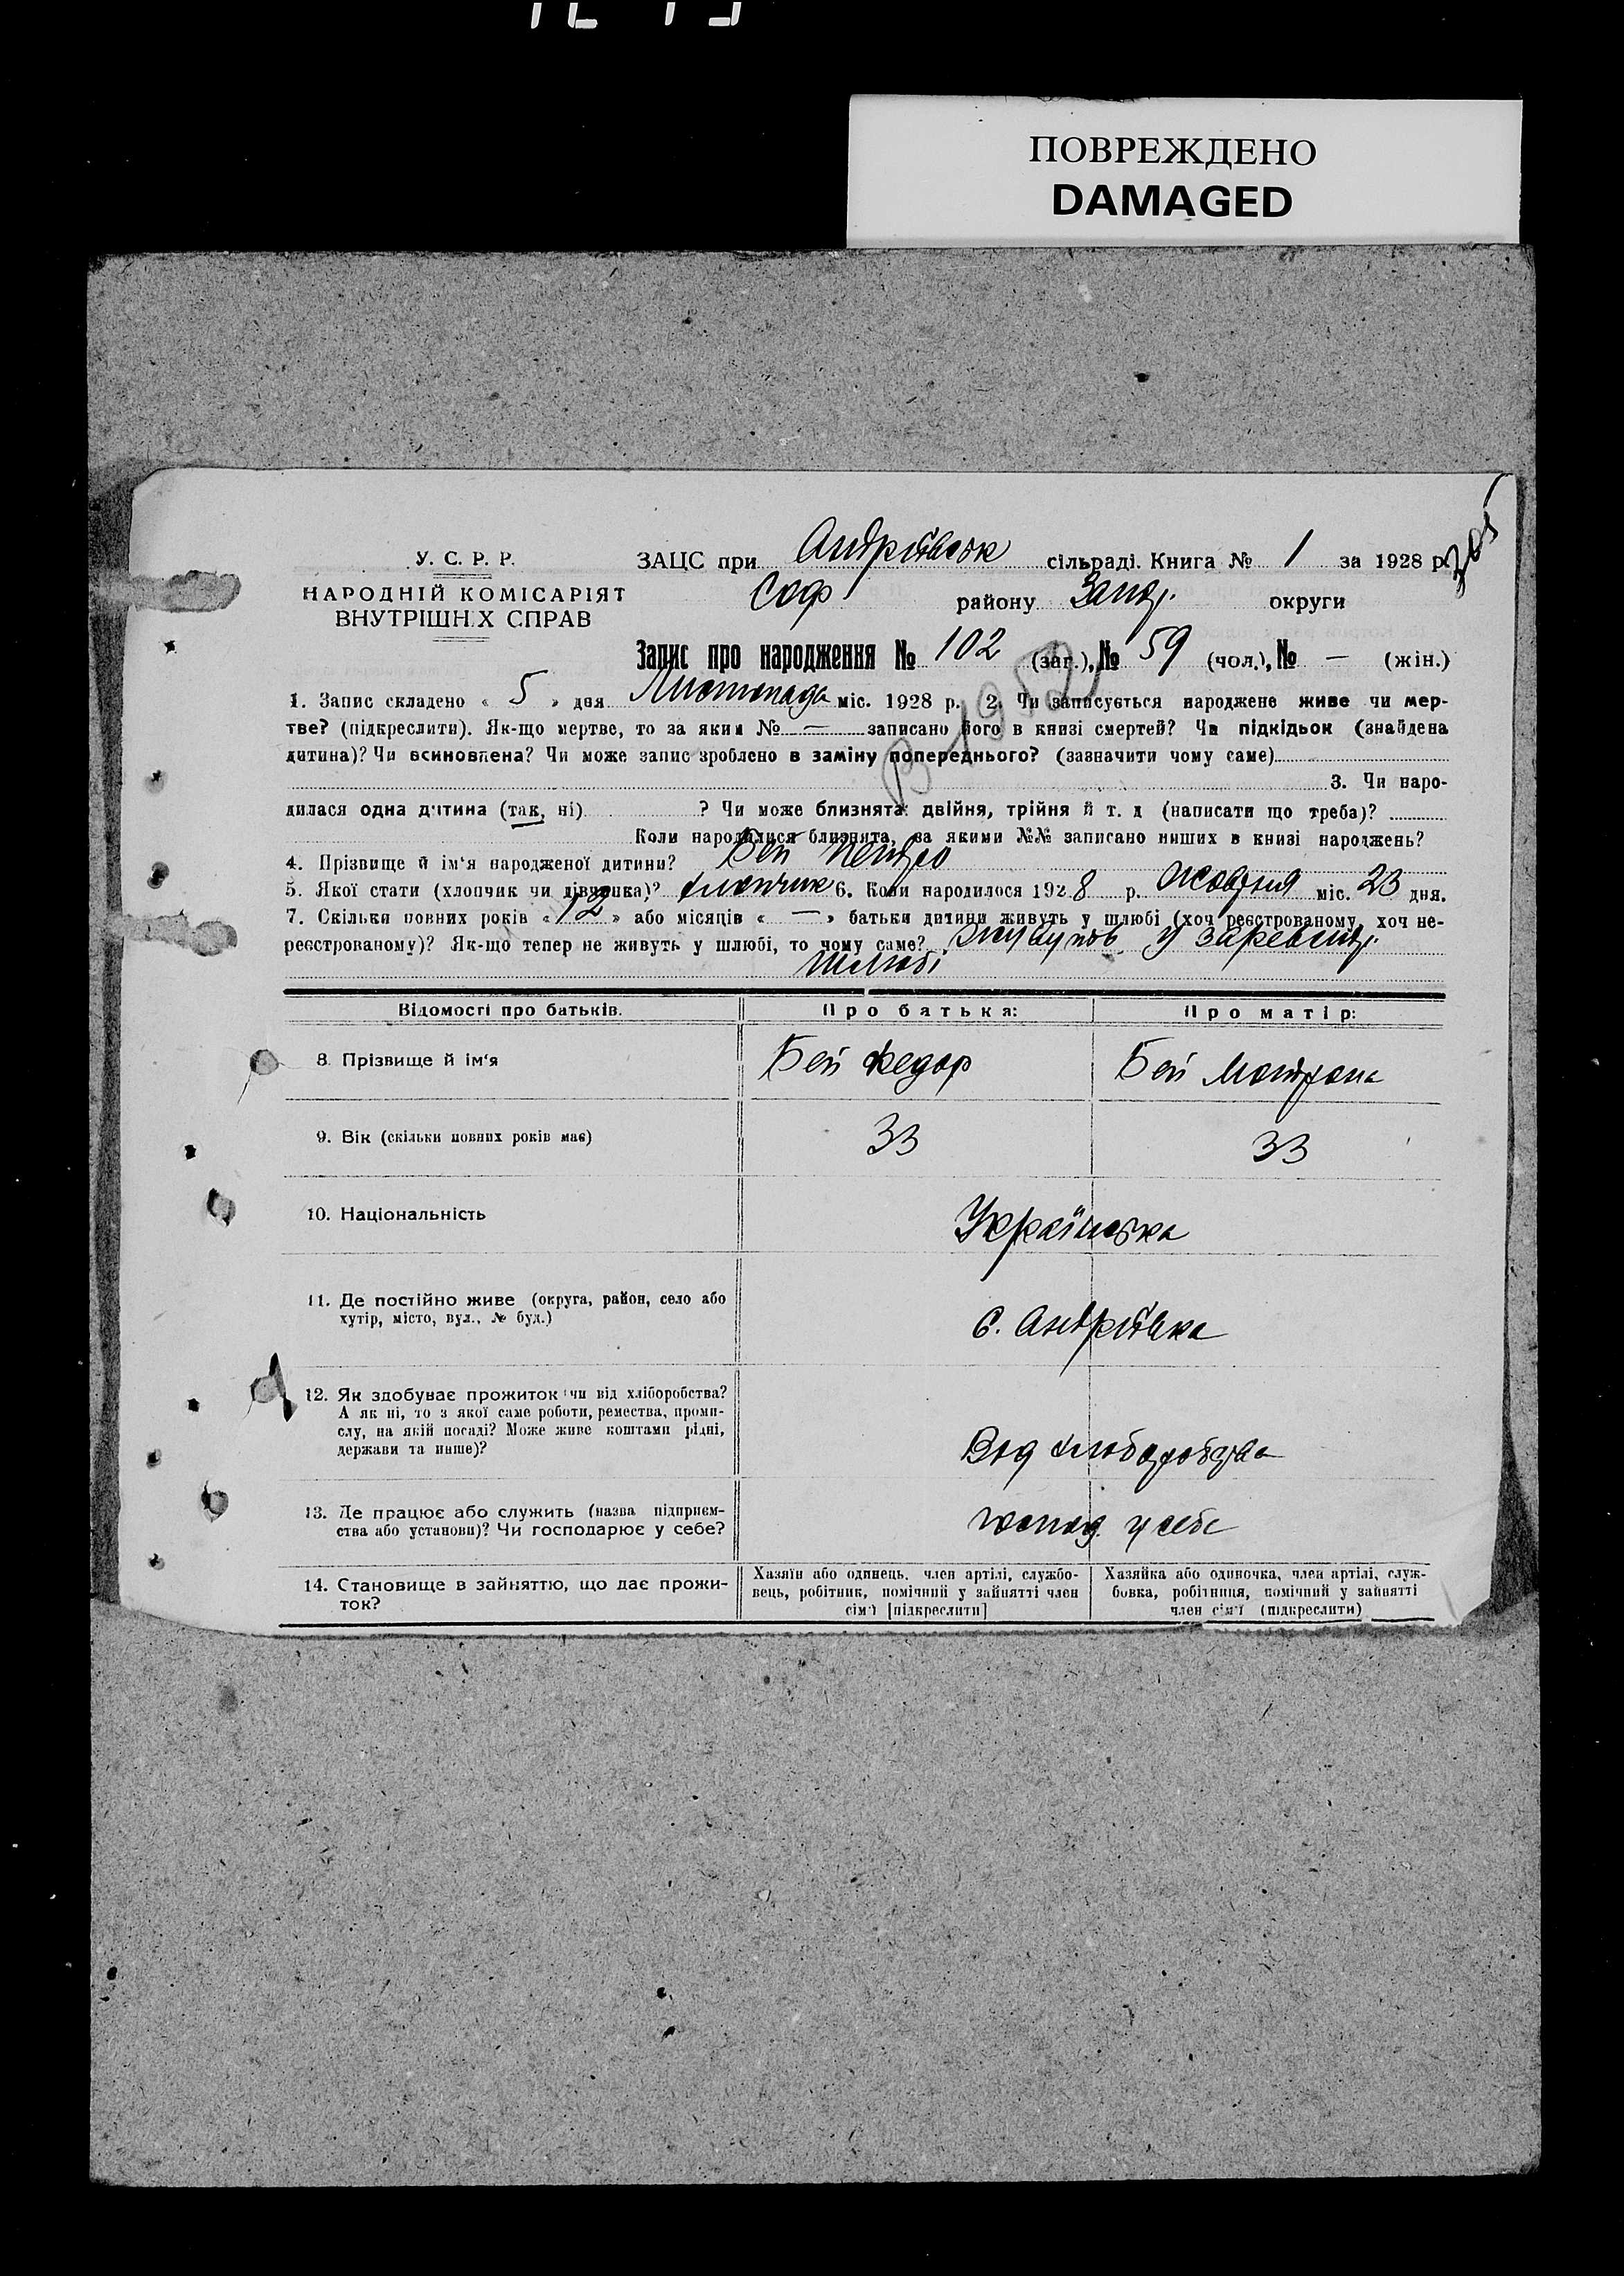 ПОВРЕЖДЕНО
DAMAGED
У. С. Р. Р.
НАРОДНІЙ КОМІСАРІЯТ
ВНУТРІШНІХ СПРАВ
ЗАЦС при Андріївськ сільраді. Книга № 1 за 1928 р.
Соф. району Запор. округи
Запис про народження № 102 (заг.), № 59 (чол.), № — (жін.)
1. Запис складено « 5 » дня Листопада міс. 1928 р. 2. Чи записується народжене живе чи мер-
тве? (підкреслити). Як-що мертве, то за яким № — записано його в книзі смертей? Чи підкідьок (знайдена
дитина)? Чи всиновлена? Чи може запис зроблено в заміну попереднього? (зазначити чому саме)
3. Чи наро-
дилася одна дитина (так, ні) ? Чи може близнята: двійня, трійня й т. д (написати що треба)?
Коли народилися близнята, за якими №№ записано инших в книзі народжень?
4. Прізвище й ім'я народженої дитини? Бей Петро
5. Якої стати (хлопчик чи дівчинка)? хлопчик 6. Коли народилося 1928 р. Жовтня міс. 23 дня.
7. Скільки повних років « 12 » або місяців « — » батьки дитини живуть у шлюбі (хоч реєстрованому, хоч не-
реєстрованому)? Як-що тепер не живуть у шлюбі, то чому саме? у зареєстр.
шлюбі
Відомості про батьків. Про батька: Про матір:
8. Прізвище й ім'я Бей Федор Бей Мотрона
9. Вік (скільки повних років має) 33 33
10. Національність Українська
11. Де постійно живе (округа, район, село або
хутір, місто, вул., № буд.) с. Андріївка
12. Як здобуває прожиток чи від хліборобства?
А як ні, то з якої саме роботи, ремества, проми-
слу, на якій посаді? Може живе коштами рідні,
держави та инше)? Від хліборобства
13. Де працює або служить (назва підприєм-
ства або установи)? Чи господарює у себе? господ. у себе
14. Становище в зайняттю, що дає прожи-
ток?
Хазяїн або одинець, член артілі, службо-
вець, робітник, помічний у зайнятті член
сім'ї [підкреслити]
Хазяйка або одиночка, член артілі, служ-
бовка, робітниця, помічний у зайнятті
член сім'ї (підкреслити)